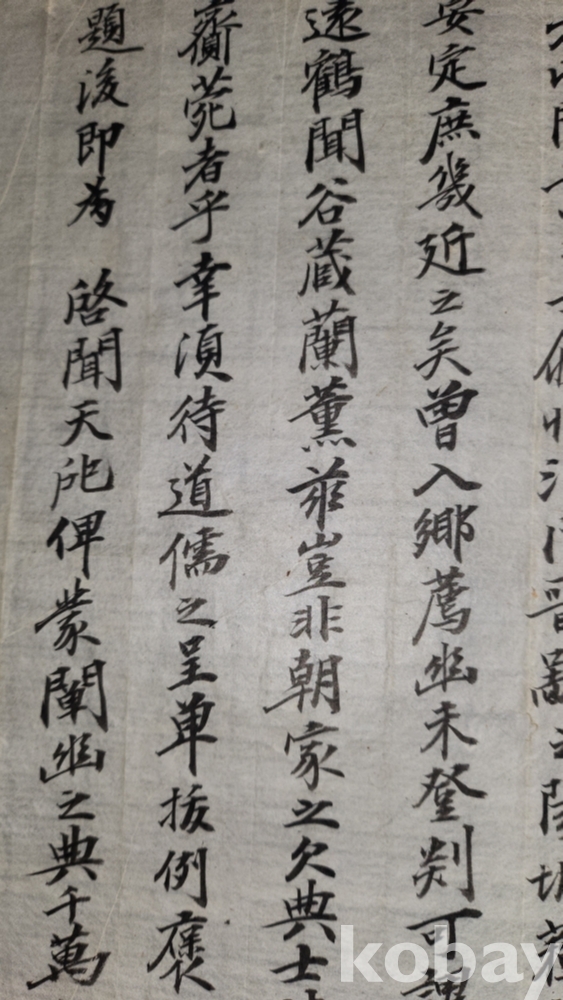 安定庶幾近之矣曾入鄉薦幽未登剡可謂
遠鶴聞谷蔵蘭薫豈非朝家之欠典士
菀者乎幸須待道儒之呈單拔例褒
題後即為 啓聞天俾蒙闡幽之典千萬
kobay